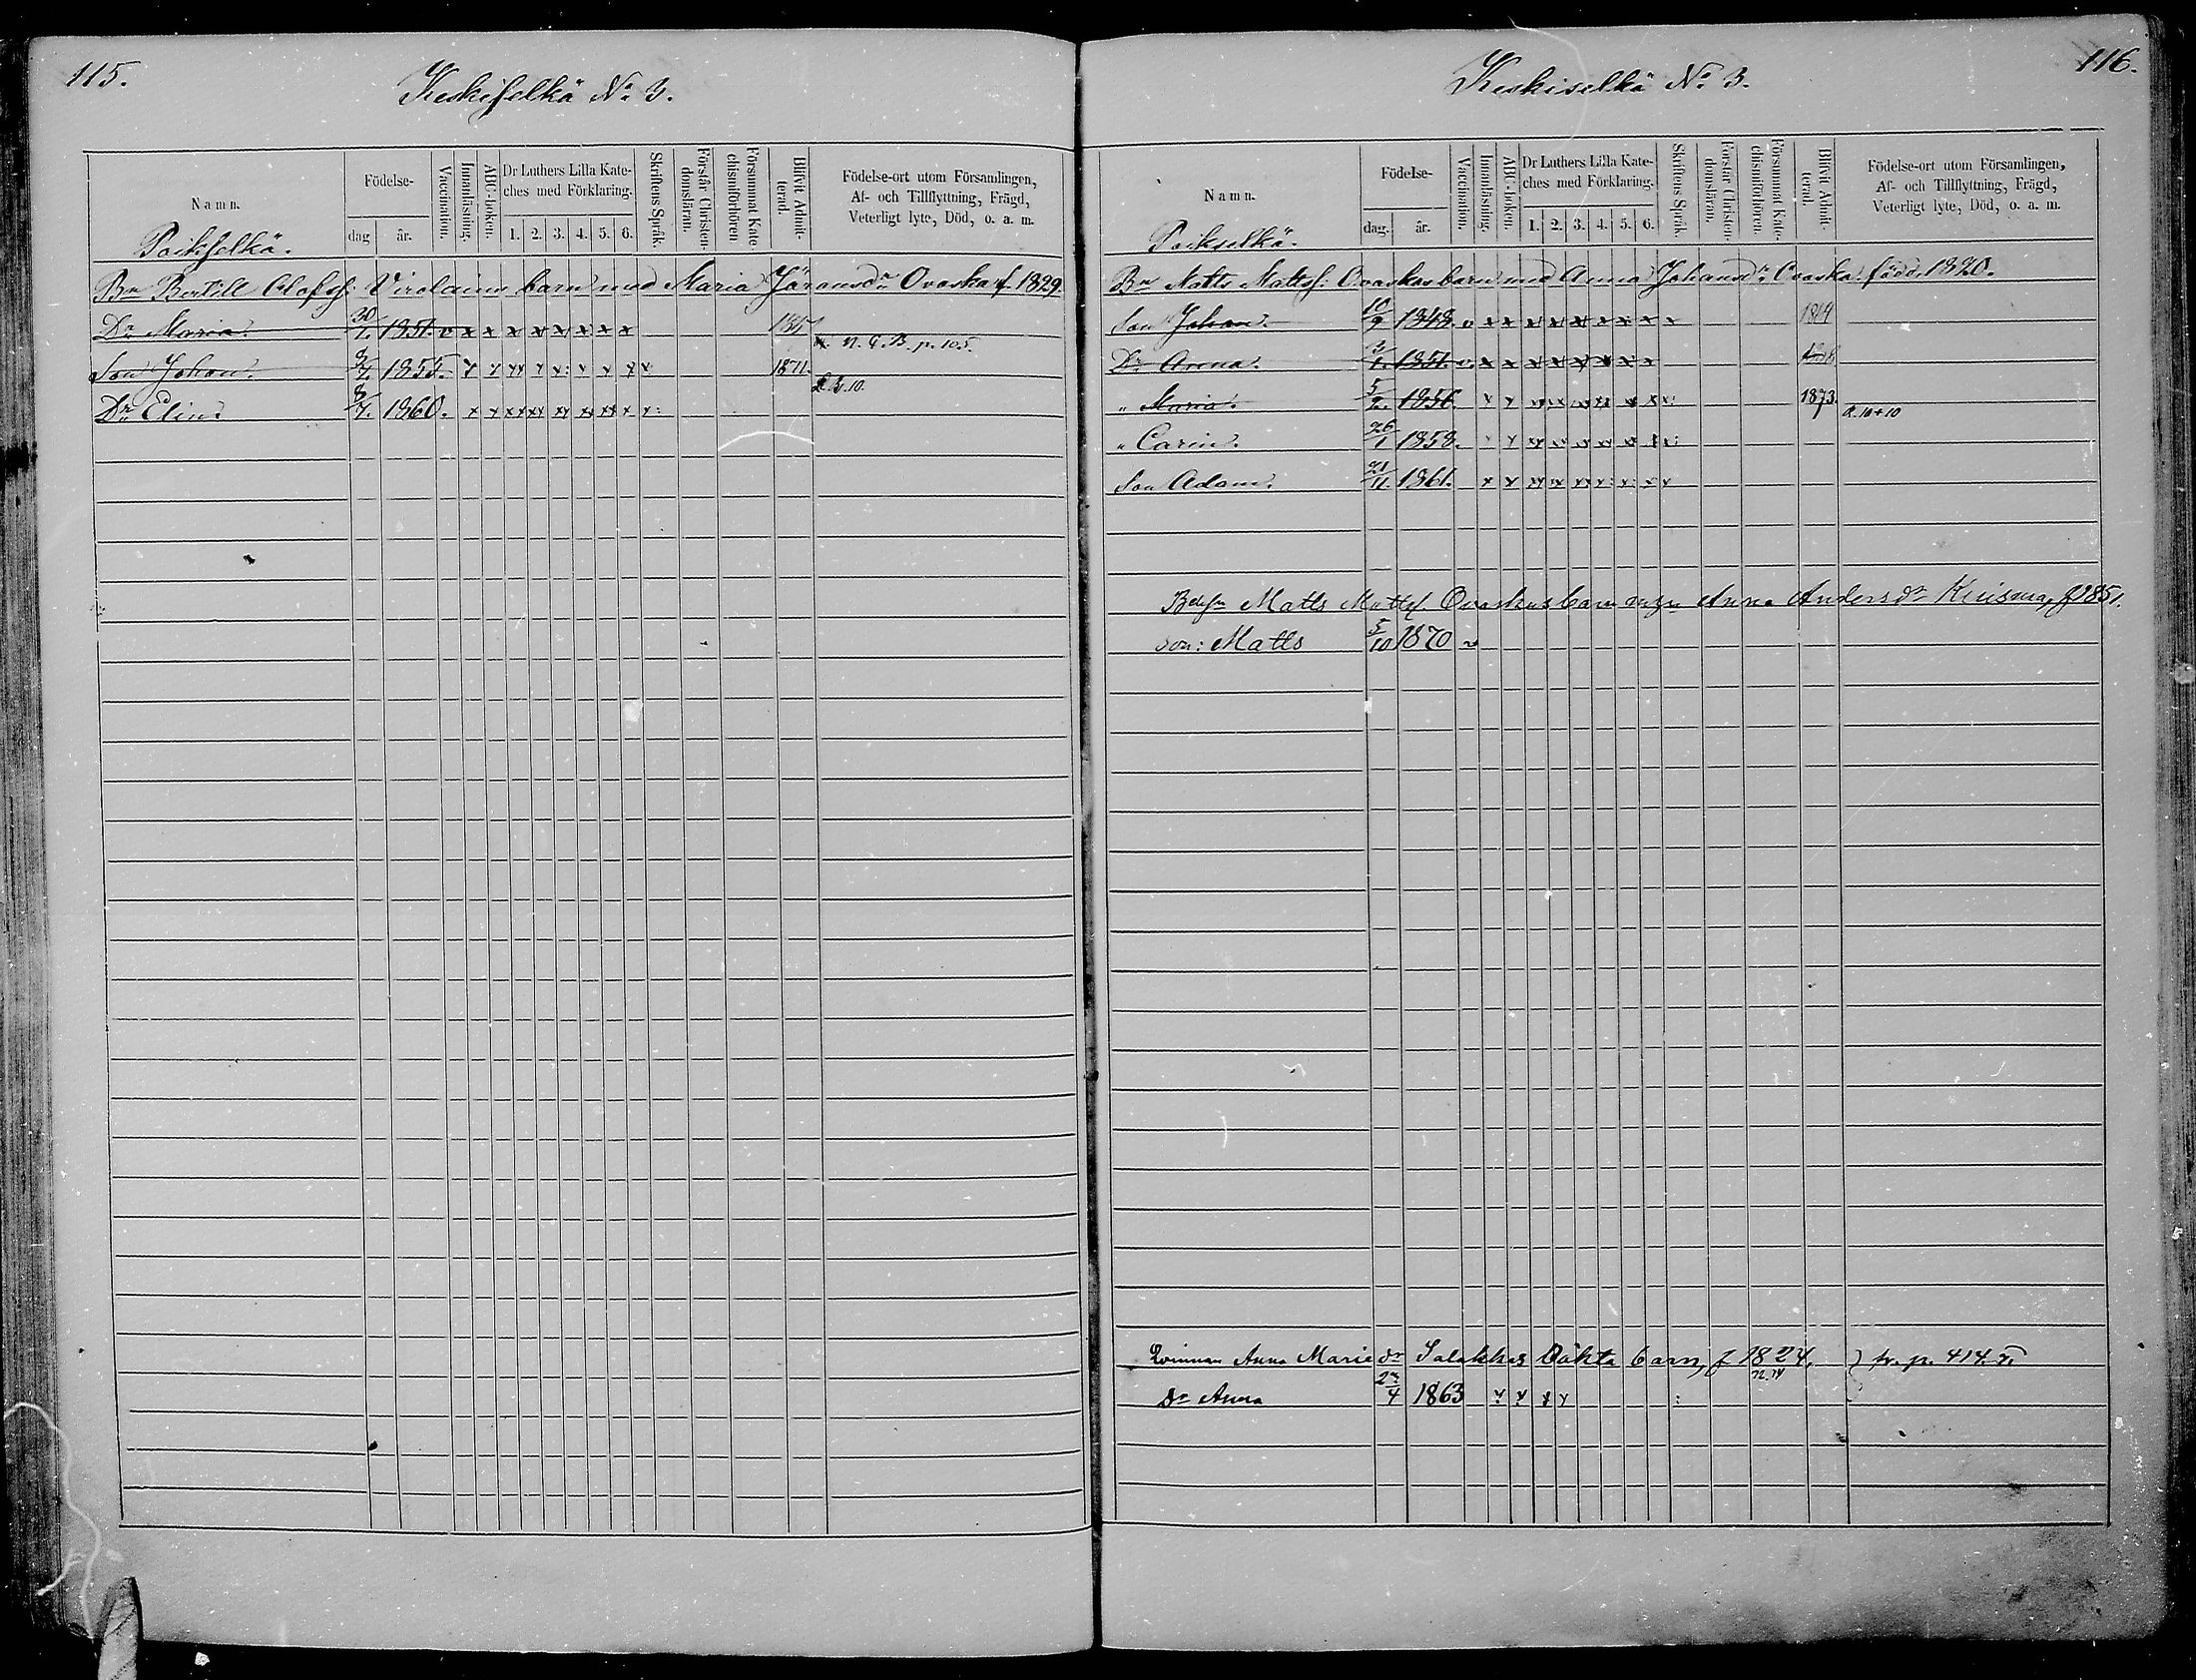 115.
Keskiselkä No 3.
Namn.
Födelse-
dag
år.
Vaccination.
Innanläsning.
ABC-boken.
Dr Luthers Lilla Kate-
ches med Förklaring.
1. 2. 3. 4. 5. 6.
Skriftens Språk.
Förstår Christen-
domsläran.
Försummat Kate-
chismiförhören
Blifvit Admit-
terad.
Födelse-ort utom Församlingen,
Af- och Tillflyttning, Frägd,
Veterligt lyte, Död, o. a. m.
Poikselkä.
Bn Bertill Olofss: Virolainens barn med Maria Göransdr Ovaska f. 1829
Dr Maria. 30/7. 1851. v x x x x x x x x
n. C. B. p. 105.
Son Johan. 1855. 1871.
Dr Elin. 8/7. 1860.
116.
Keskiselkä No 3.
Namn.
Födelse-
dag.
år.
Vaccination.
Innanläsning.
ABC-boken.
Dr Luthers Lilla Kate-
ches med Förklaring.
1. 2. 3. 4. 5. 6.
Skriftens Språk.
Förstår Christen-
domsläran.
Försummat Kate-
chismiförhören.
Blifvit Admit-
terad.
Födelse-ort utom Församlingen,
Af- och Tillflyttning, Frägd,
Veterligt lyte, Död, o. a. m.
Poikselkä.
Bn Matts Mattss: Ovaskas barn med Anna Johansdr Ovaska född 1820.
Son Johan. 10/9 1848. v x x x x x x x x x 1869
Dr Arena. 2/1. 1851. v. x x x x x x x x
" Maria. 5/2. 1856. 1873.
" Carin. 26/1 1858.
Son Adam. 21/11. 1861.
Matts Mattss. Ovaskas barn Anna Andersdr Kuisma, f 1851.
son: Matts 5/10 1870 v
Qvinnan Anna Mariedr Salakkas Oäkta barn, f 1824. fr. p. 414.
dr Anna 23/4 1863